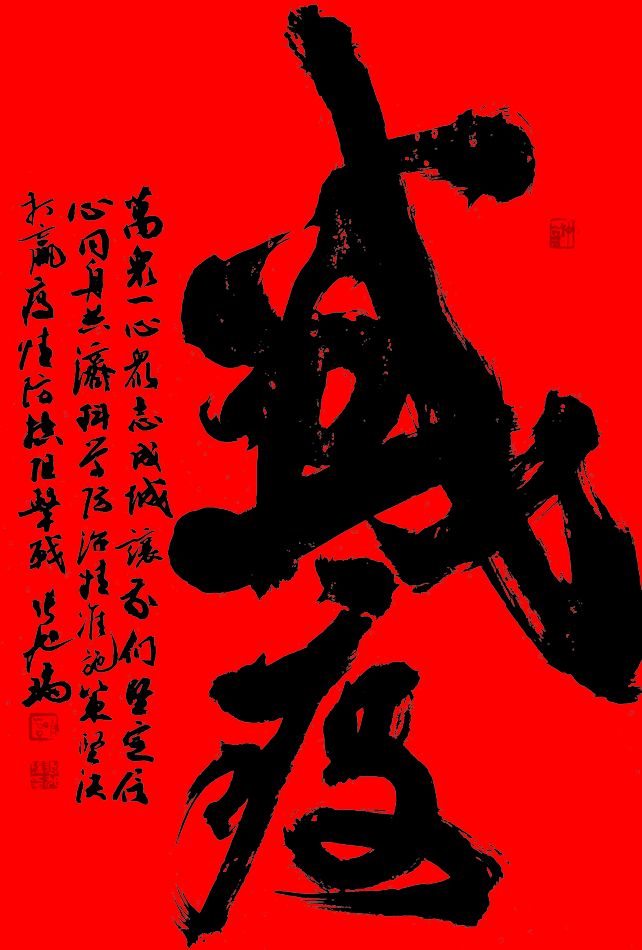 战疫
萬衆一心衆志成城讓我们坚定信
心同舟共濟科学防治精准施策坚决
打贏疫情防控阻擊战